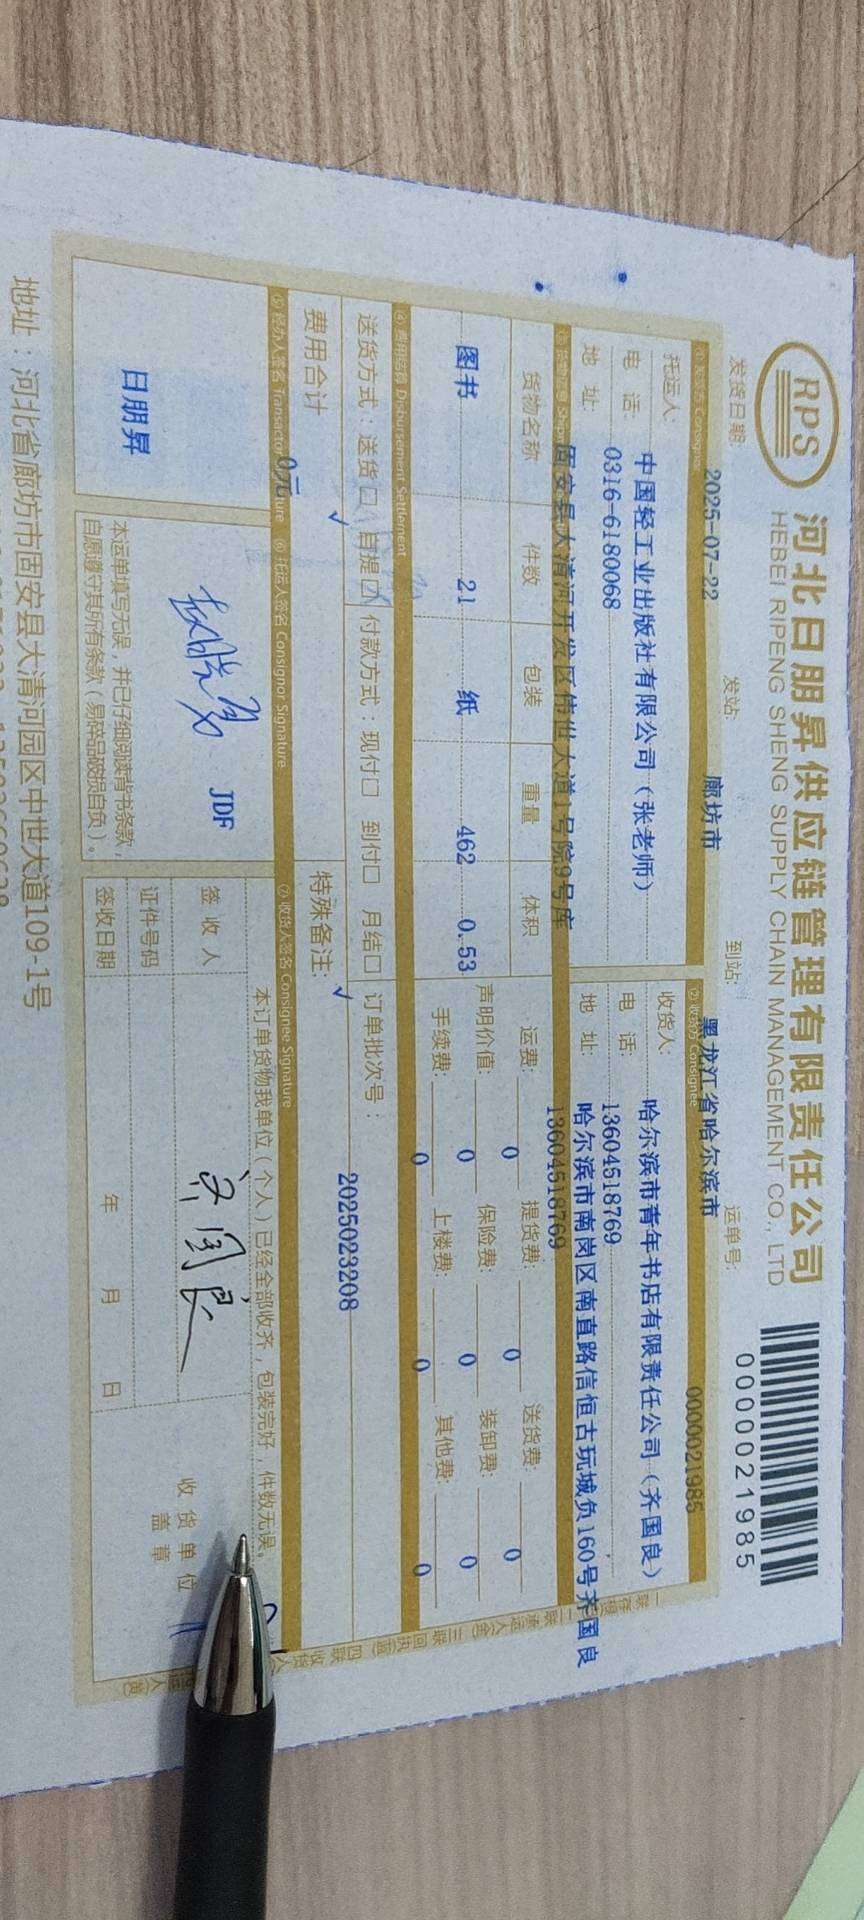 RPS
河北日朋昇供应链管理有限责任公司
HEBEI RIPENG SHENG SUPPLY CHAIN MANAGEMENT CO., LTD
0000021985
发货日期: 2025-07-22 发站: 廊坊市 到站: 黑龙江省哈尔滨市 运单号: 0000021985
① 发货方 Consignor
② 收货方 Consignee
托运人: 中国轻工业出版社有限公司（张老师）
收货人: 哈尔滨市青年书店有限责任公司（齐国良）
电 话: 0316-6180068
电 话: 13604518769
地 址: 固安县大清河开发区伟世大道1号院9号库
地 址: 哈尔滨市南岗区南直路信恒古玩城负160号齐国良
13604518769
货物名称 件数 包装 重量 体积
图书 21 纸 462 0.53
运费: 0 提货费: 0 送货费: 0
声明价值: 0 保险费: 0 装卸费: 0
手续费: 0 上楼费: 0 其他费: 0
④ 费用结算 Disbursement Settlement
送货方式：送货□ 自提□ 付款方式：现付□ 到付□ 月结□ 订单批次号：
✓ ✓ 2025023208
费用合计 0元 特殊备注:
⑥ 托运人签名 Consignor Signature
⑦ 收货人签名 Consignee Signature
日朋昇
JDF
本运单填写无误，并已仔细阅读背书条款，
自愿遵守其所有条款（易碎品破损自负）。
本订单货物我单位（个人）已经全部收齐，包装完好，件数无误。
签 收 人 齐国良
证件号码
签收日期 年 月 日
收货单位
盖 章
地址：河北省廊坊市固安县大清河园区中世大道109-1号